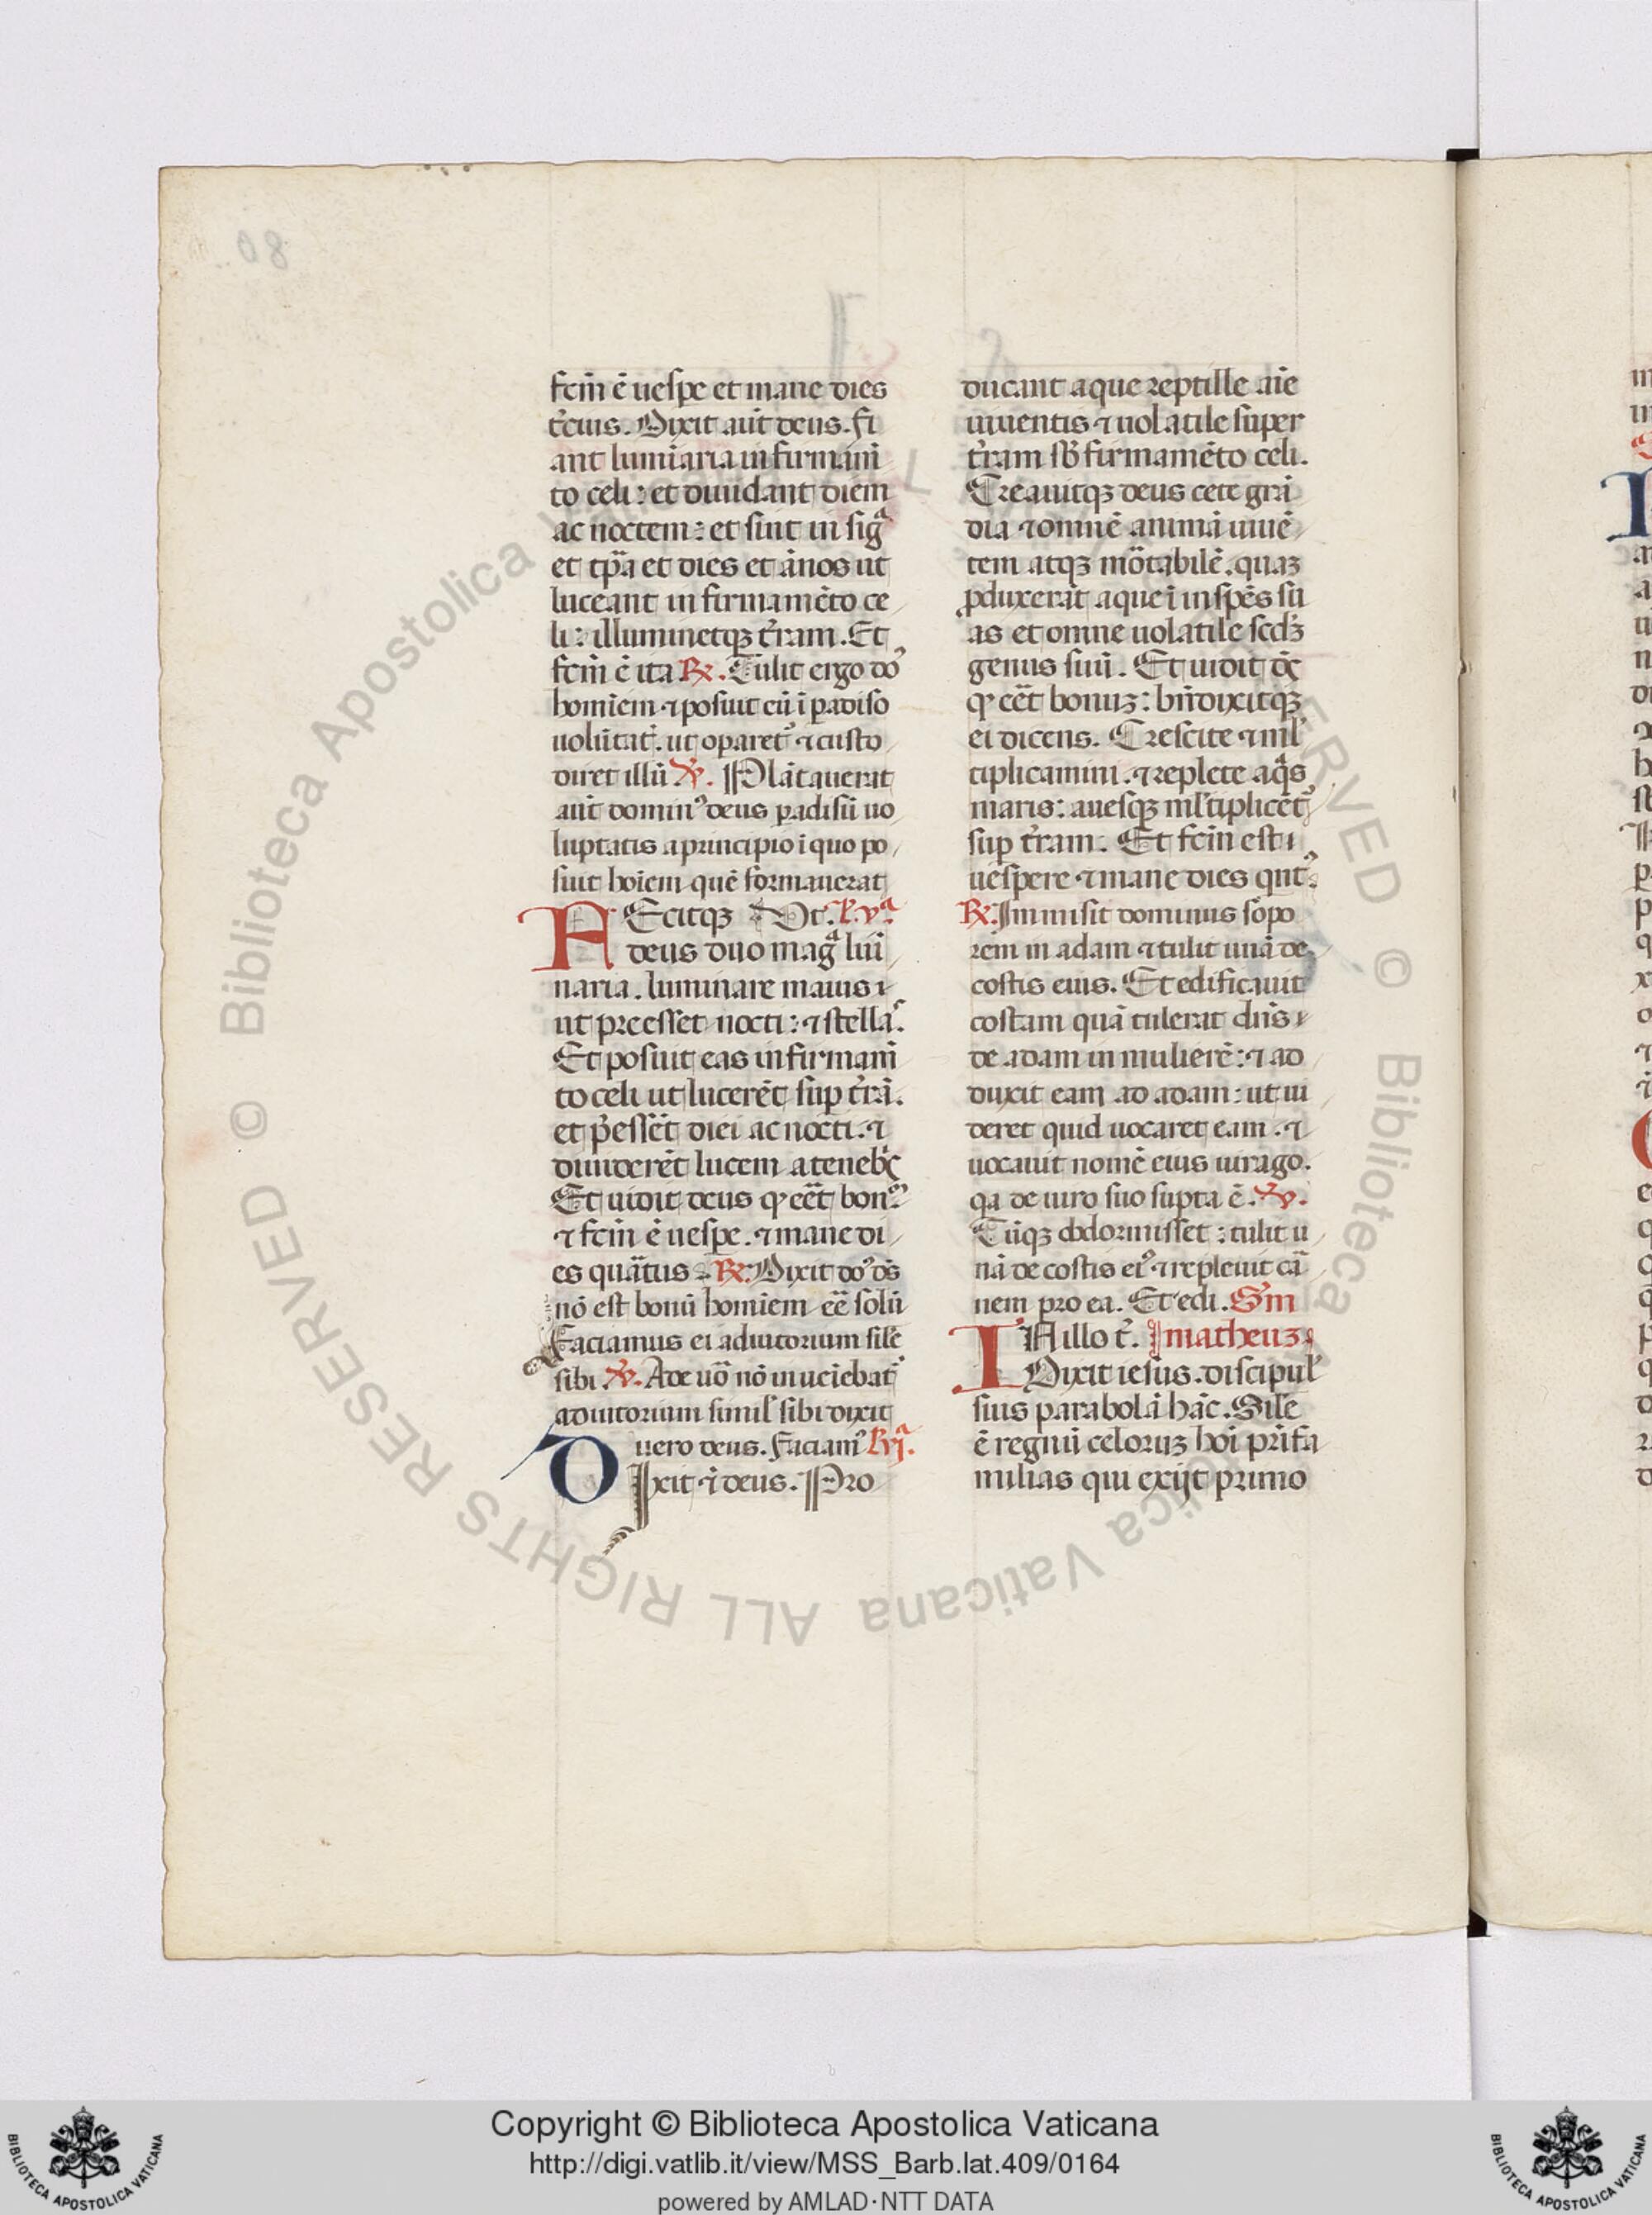 fcm̄ ē uespe et mane dies
t̓cius. Dixit aūt deus. fi
ant lumīaria in firmam̄
to celi: et diuidant diem
ac noctem: et sint in sigᵃ
et tp̄a et dies et ānos ut
luceant in firmamēto ce
li: illuminetqꝫ t̓ram. Et
fcm̄ ē ita ℞. Tulit ergo do᷒
homīem ⁊ posuit eū ī ꝑadiso
uolūtat̓. ut oꝑaret᷒ ⁊ custo
diret illū ℣. Plātauerat
aūt domin᷒ deus ꝑadisū uo
luptatis a principio ī quo po
suit hoīem quē formauerat
FEcitqꝫ Dt. l̓. vᵃ
deus duo magᵃ lūi
naria. luminare maius ⁊
ut preesset nocti: ⁊ stella᷒.
Et posuit eas in firmam̄
to celi ut lucerēt suꝑ t̓rā.
et p̓essēt diei ac nocti. ⁊
diuiderēt lucem a tenebꝭ
Et uidit deus ꝙ eēt bon᷒
⁊ fcm̄ ē uespe. ⁊ mane di
es quātus. ℞. Dixit do᷒ ds̄
nō est bonū homīem eē solū
Faciamus ei adiutorium sil̄e
sibi. ℣. Ade uō nō inueiēbat᷒
adiutorium simil̓ sibi dixit
uero deus. Faciam᷒ l̓. vjᵃ.
DIxit ⁊ deus. Pro
ducant aque reptille aīe
uiuentis ⁊ uolatile super
t̓ram sb̓ firmamēto celi.
Creauitqꝫ deus cete grā
dia ⁊ omnē animā uiuē
tem atqꝫ mōtabilē. quaꝫ
ꝓduxerāt aque ī in spēs su
as et omne uolatile scd̓ꝫ
genus suū. Et uidit dꝭ
ꝙ eēt bonuꝫ: bn̄dixitqꝫ
ei dicens. Crescite ⁊ ml̓
tiplicamini. ⁊ replete aqᵃs
maris: auesqꝫ ml̓tiplicēt᷒
suꝑ t̓ram. Et fcm̄ est ⁊
uespere ⁊ mane dies qnt᷒.
℞. Immisit dominus sopo
rem in adam ⁊ tulit unā de
costis eius. Et edificauit
costam quā tulerat dn̄s ⁊
de adam in mulierē: ⁊ ad
duxit eam ad adam: ut ui
deret quid uocaret eam. ⁊
uocauit nomē eius uirago.
qa de uiro suo supta ē. ℣.
Cūqꝫ obdormisset: tulit u
nā de costis ei᷒ ⁊ repleuit cā
nem pro ea. Et edi. Sm̄
IN illo t̓. matheuꝫ
Dixit iesus. discipul̓
suis parabolā hāc. Sil̄e
ē regnū celoruꝫ hoī prīfa
milias qui exijt primo
Copyright © Biblioteca Apostolica Vaticana
http://digi.vatlib.it/view/MSS_Barb.lat.409/0164
powered by AMLAD·NTT DATA